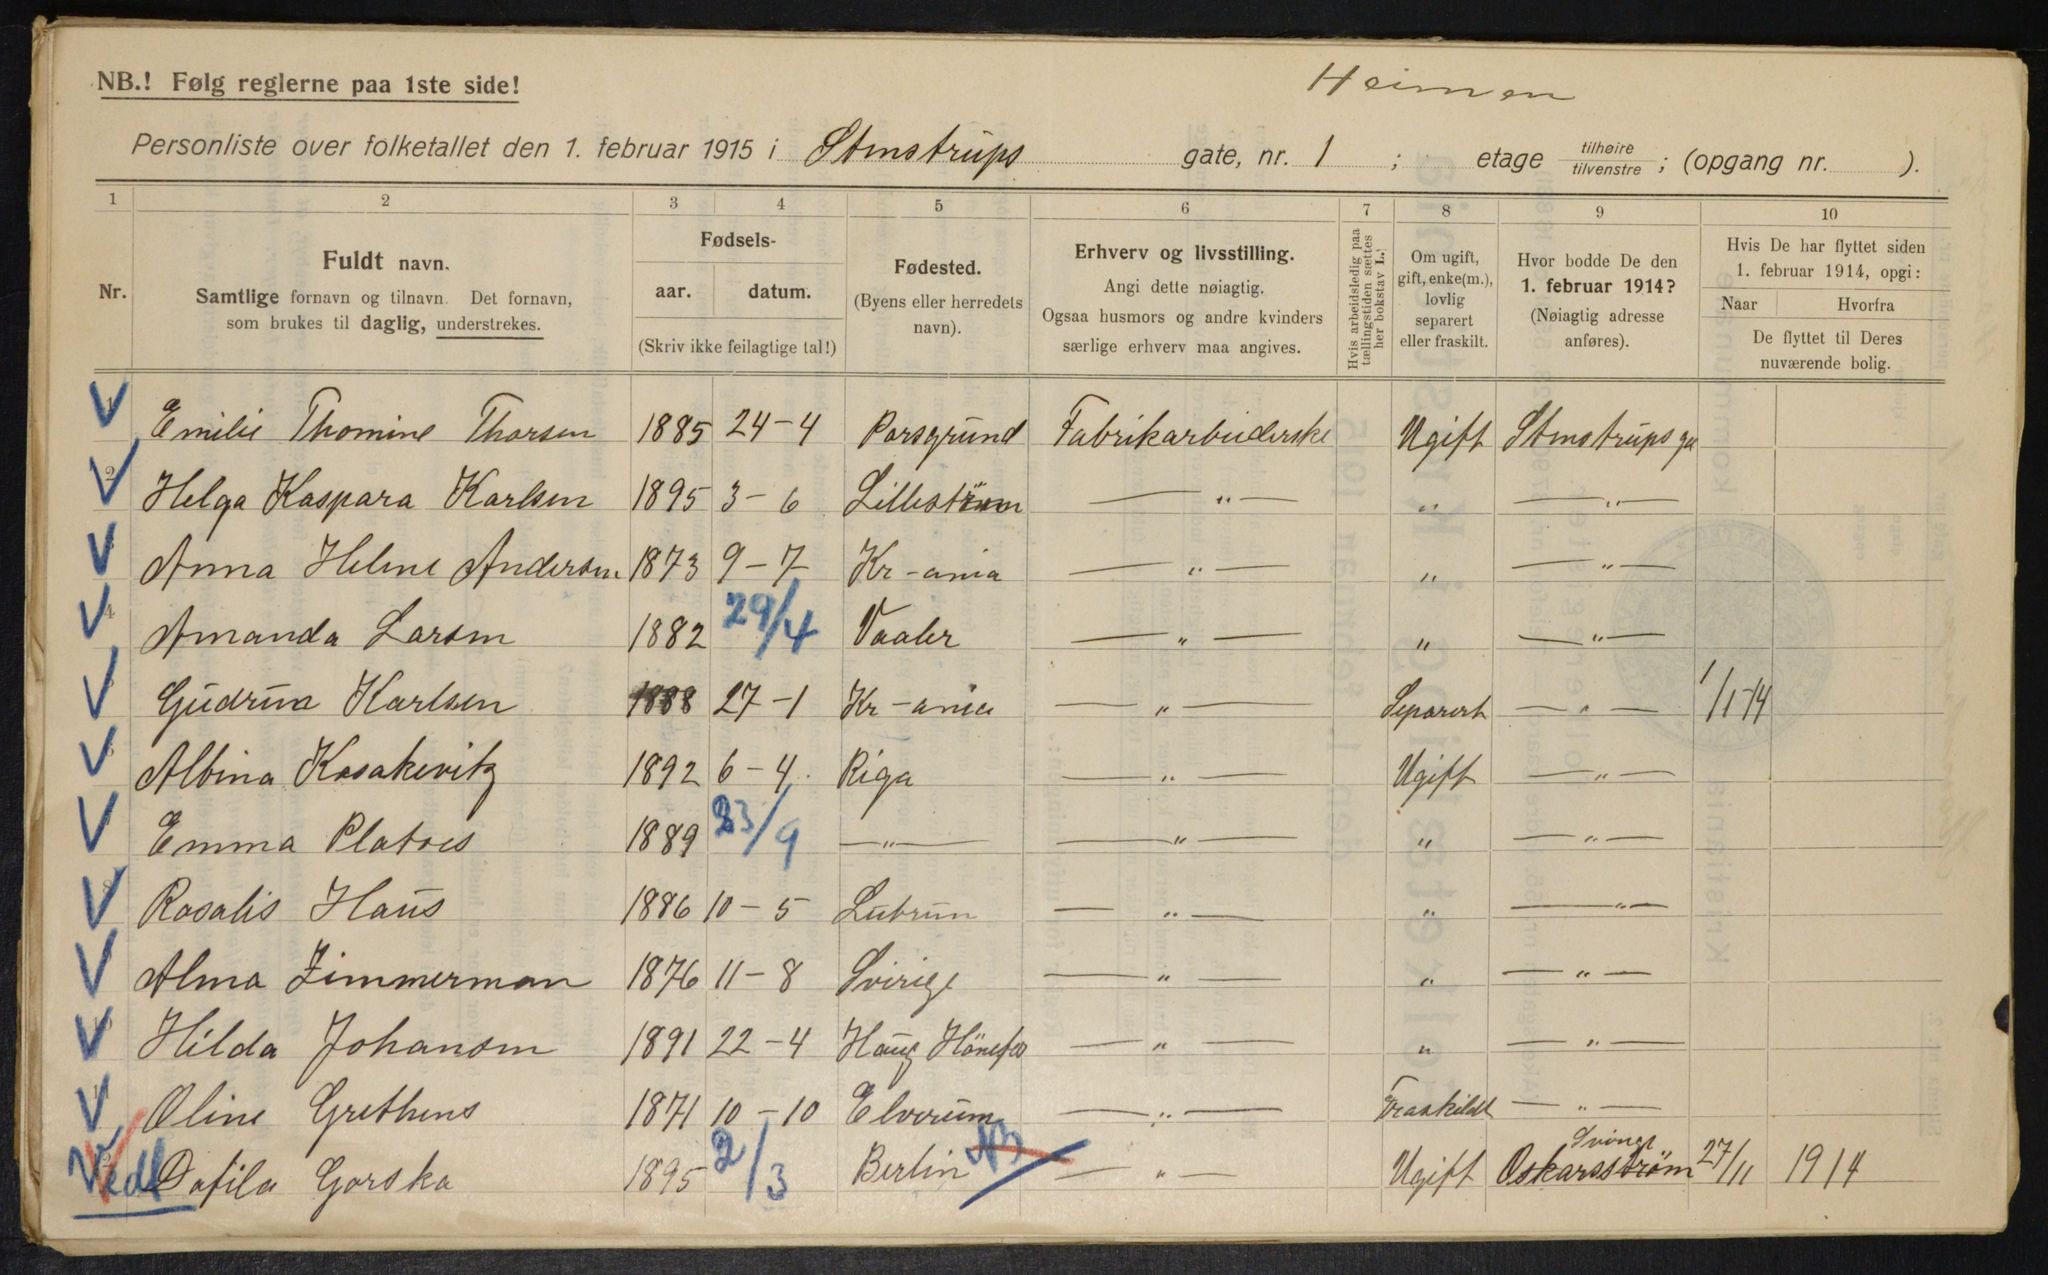 Heimen
NB.! Følg reglerne paa 1ste side!
Personliste over folketallet den 1. februar 1915 i Stenstrups gate, nr. 1 ; etage tilhøire tilvenstre ; (opgang nr. ).
1 2 3 4 5 6 7 8 9 10
Nr.
Fuldt navn.
Samtlige fornavn og tilnavn. Det fornavn,
som brukes til daglig, understrekes.
Fødsels-
aar. datum.
(Skriv ikke feilagtige tal!)
Fødested.
(Byens eller herredets
navn).
Erhverv og livsstilling.
Angi dette nøiagtig.
Ogsaa husmors og andre kvinders
særlige erhverv maa angives.
Hvis arbeidsledig paa
tællingstiden sættes
her bokstav L.
Om ugift,
gift, enke(m.),
lovlig
separert
eller fraskilt.
Hvor bodde De den
1. februar 1914?
(Nøiagtig adresse
anføres).
Hvis De har flyttet siden
1. februar 1914, opgi:
Naar Hvorfra
De flyttet til Deres
nuværende bolig.
1 Emilie Thomine Thorsen 1885 24-4 Porsgrund Fabrikarbeiderske Ugift Stenstrups ga
2 Helga Kaspara Karlsen 1895 3-6 Lillestrøm —„— „ —„—
3 Anna Helene Andersen 1873 9-7 Kr-ania —„— „ —„—
4 Amanda Larsen 1882 29/4 Vaaler —„— „ —„—
5 Gudrun Karlsen 1888 27-1 Kr-ania —„— Separert —„— 1/1-14
6 Albina Kosakevitz 1892 6-4 Riga —„— Ugift —„—
7 Emma Platoes 1889 23/9 —„— —„— „ —„—
8 Rosalis Haus 1886 10-5 Lubrun —„— „ —„—
9 Alma Zimmerman 1876 11-8 Sverige —„— „ —„—
10 Hilda Johansen 1891 22-4 Haug Hönefos —„— „ —„—
11 Oline Grethens 1871 10-10 Elverum —„— Fraskildt —„—
Sverige
12 Dofila Gorska 1895 2/3 Berlin —„— Ugift Oskarsström 27/11 1914